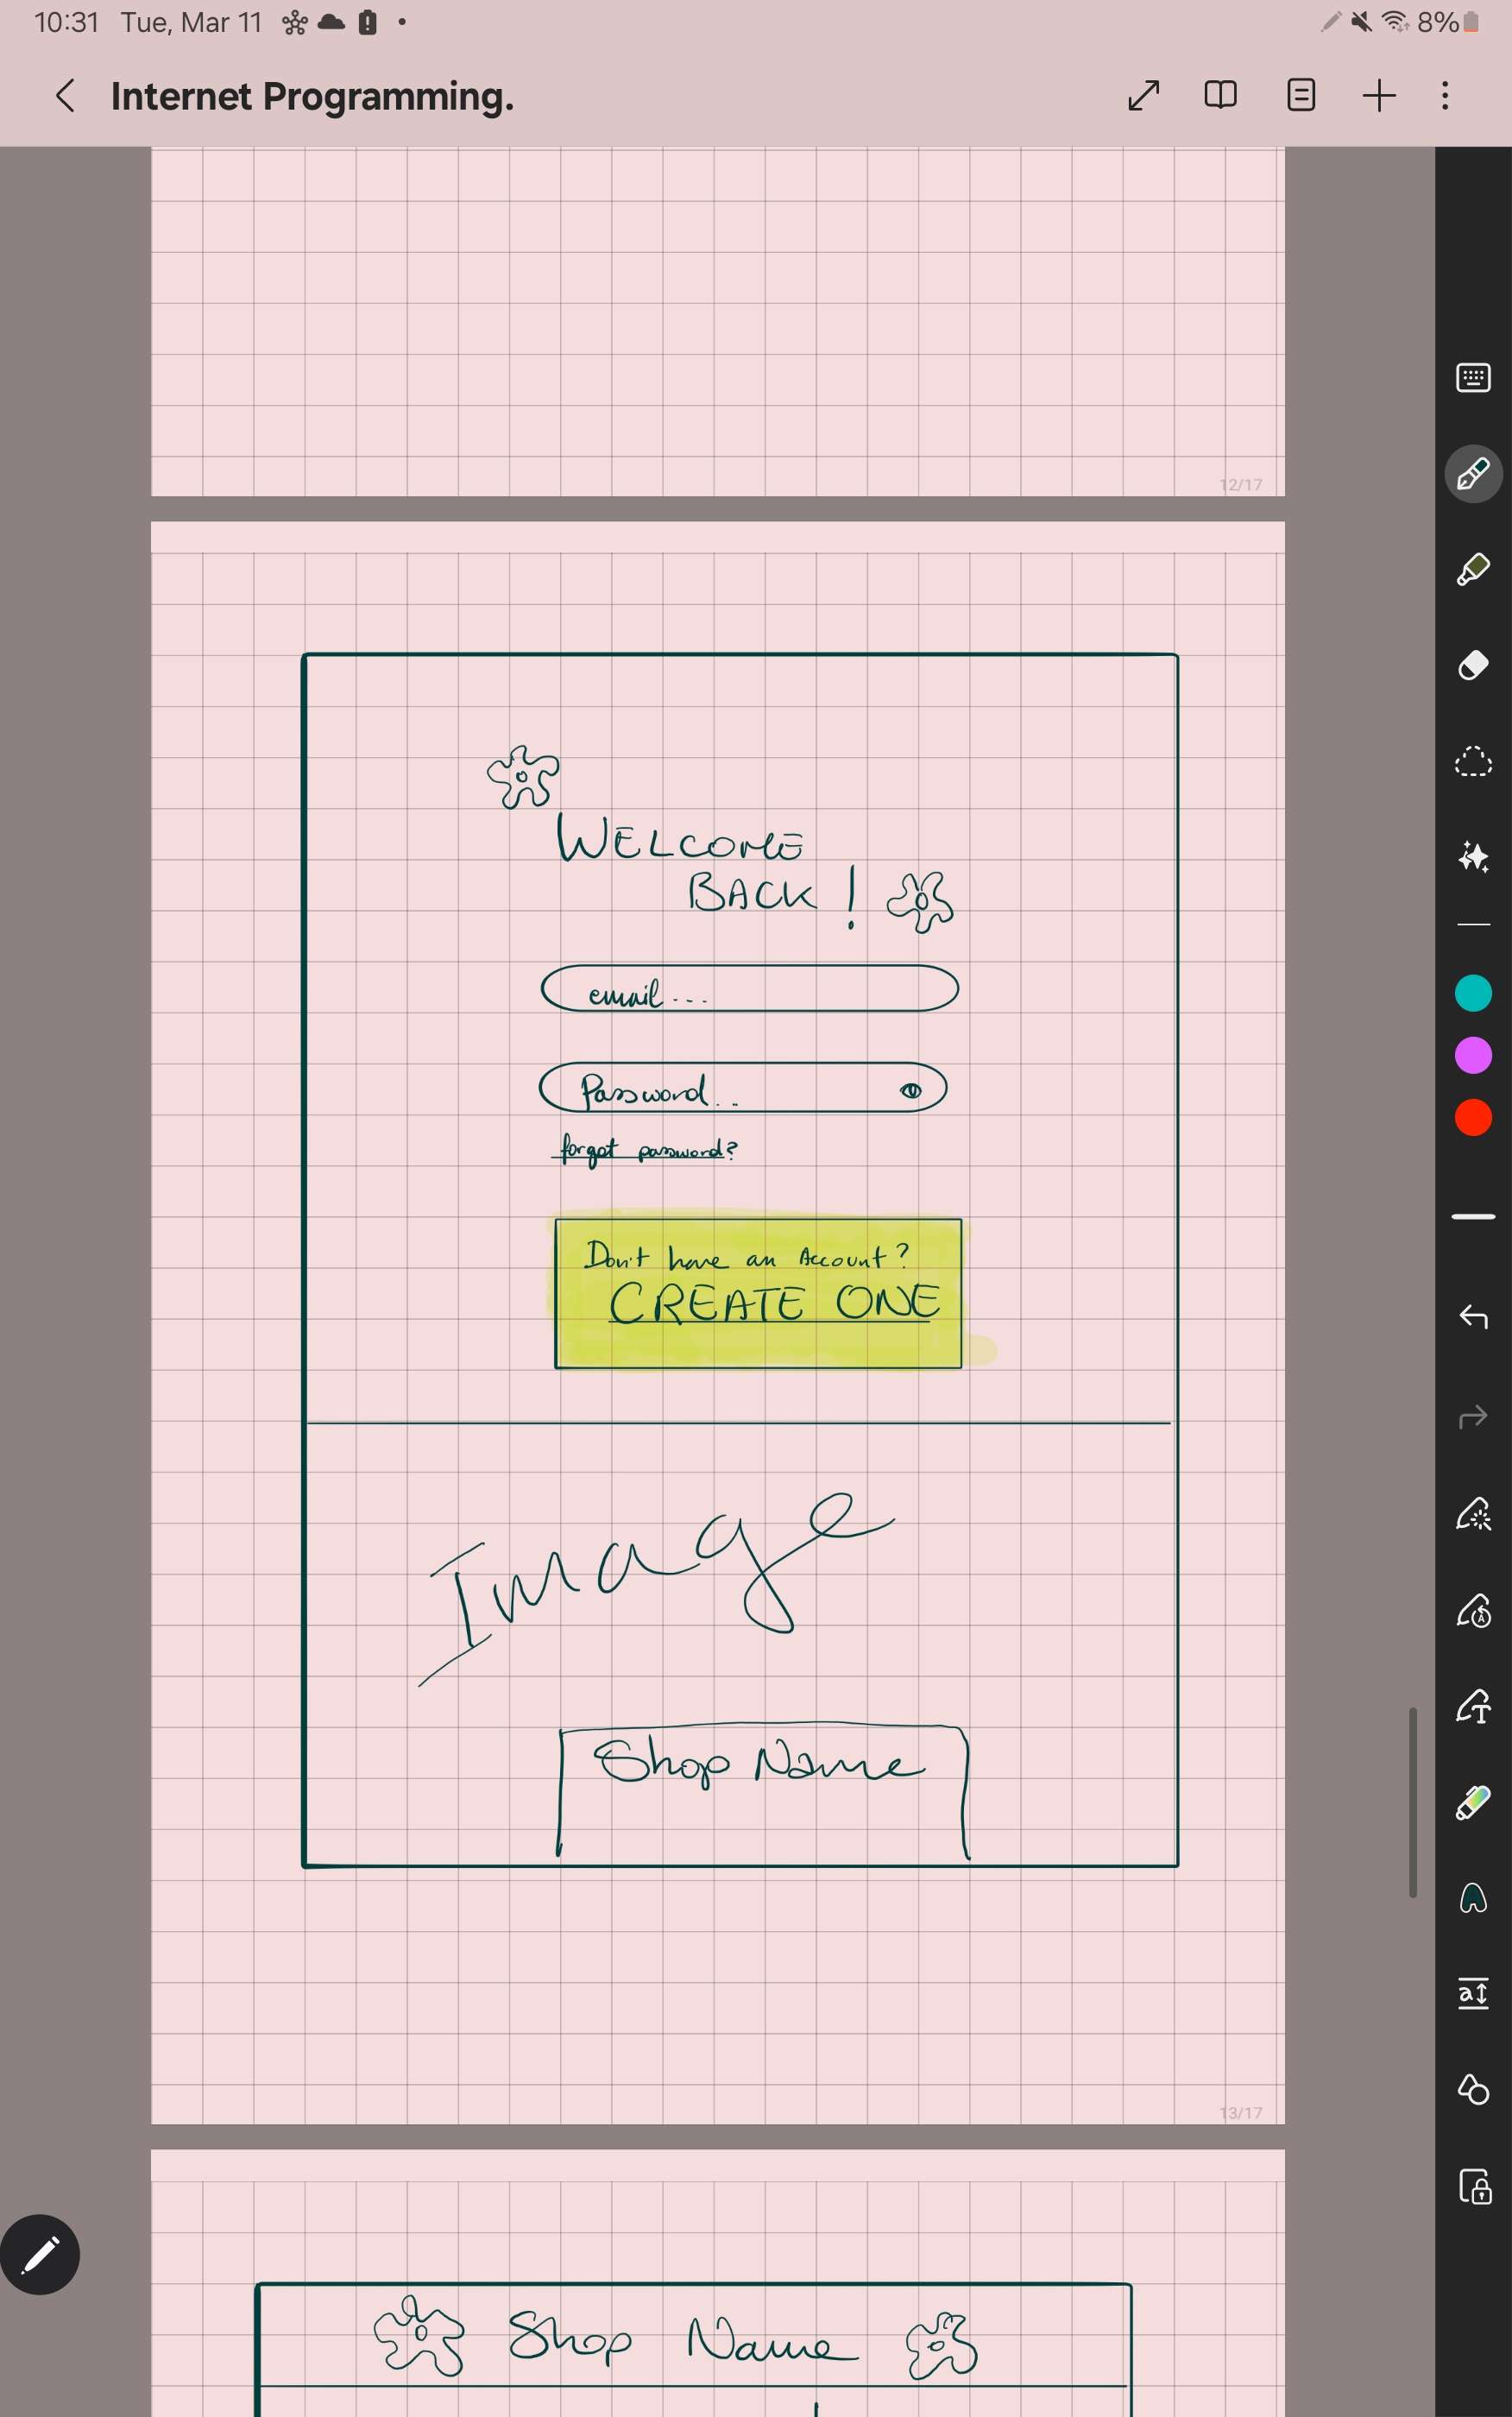 10:31 Tue, Mar 11
8%
Internet Programming.
12/17
WELCOME
BACK !
email ...
Password..
forgot password?
Don't have an Account?
CREATE ONE
Image
Shop Name
13/17
Shop Name